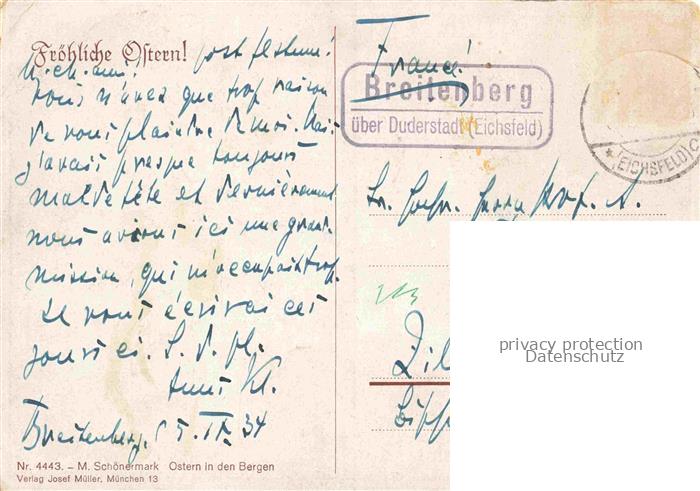 Fröhliche Ostern!
post festum!
M. ch. ami!
vous n'avez que trop raison
de vous plaindre de moi. Mais
j'avais presque toujours
mal de tête et dernièrement
nous avions ici une grande
mission, qui m'occupait trop.
Je vous écrirai ces
jours ci. S. v. pl.
Breitenberg, 5. IV. 34
Nr. 4443. – M. Schönermark Ostern in den Bergen
Verlag Josef Müller, München 13
Breitenberg
über Duderstadt (Eichsfeld)
(EICHSFELD)
Prof. A.
privacy protection
Datenschutz